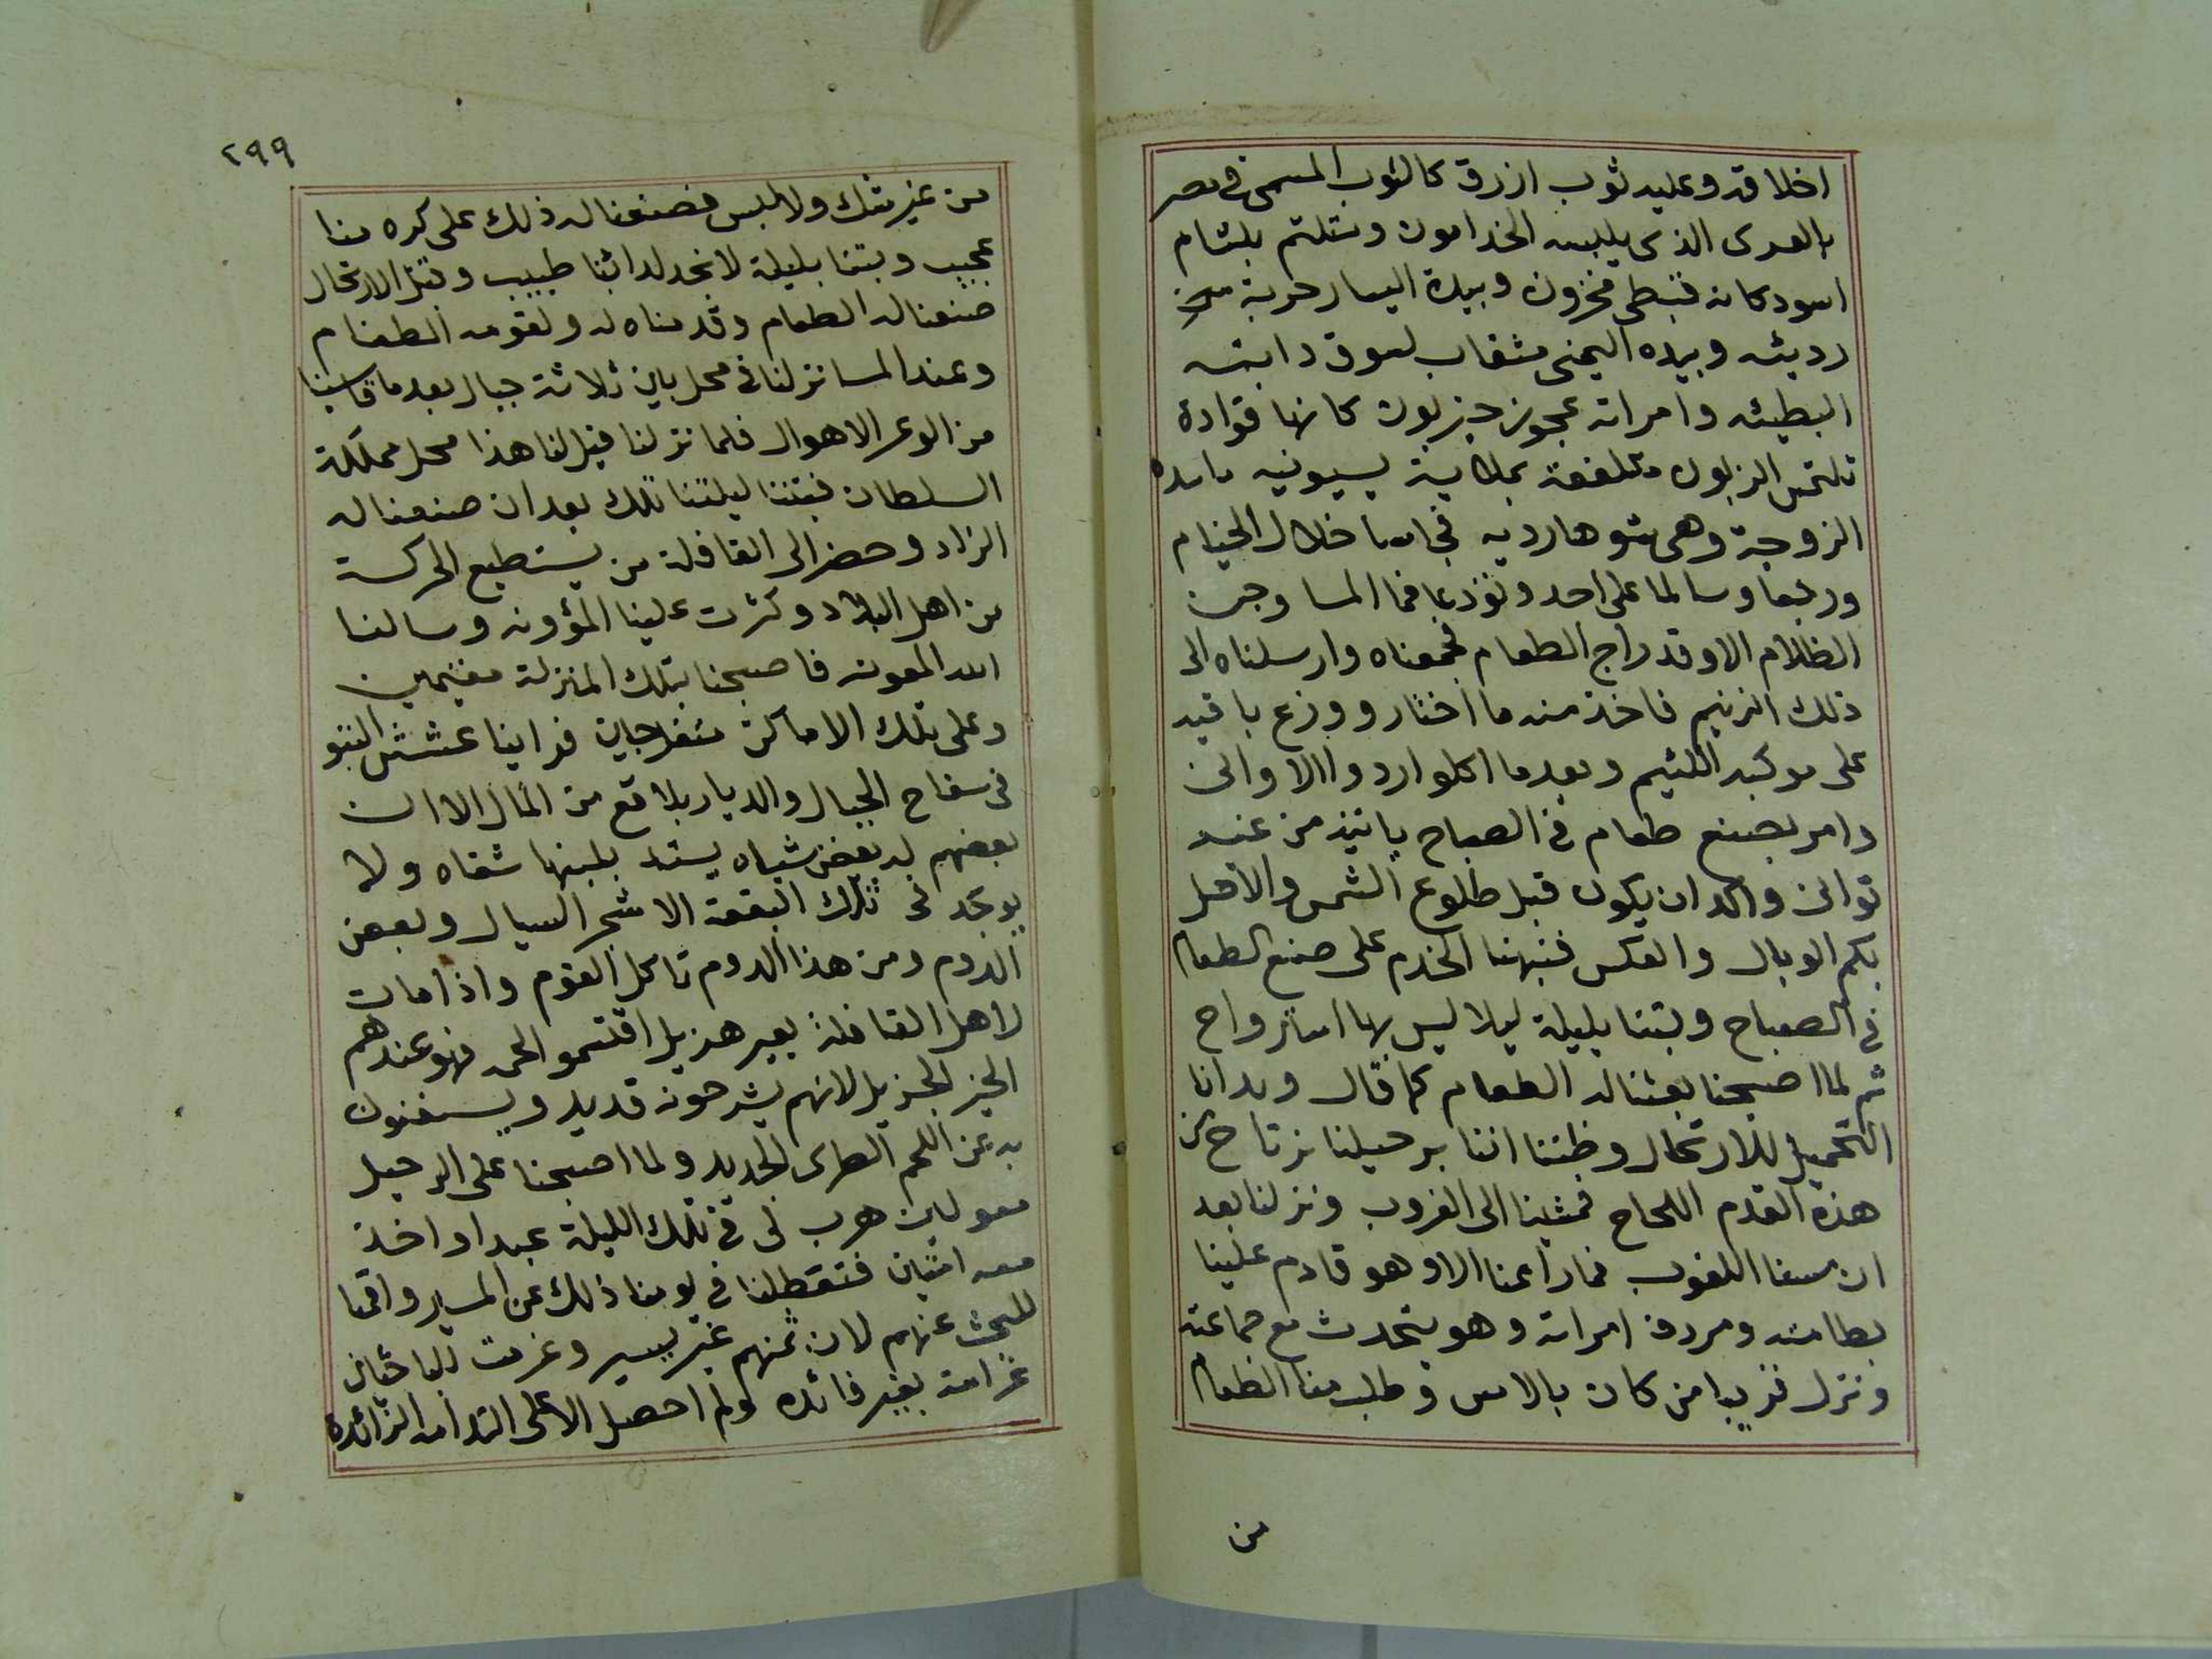 اخلاقه وعليه ثوب ازرق كالثوب المسمى فى مصر
بالعرى الذى يلبسه الخدامون ومتلثم بلثام
اسود كانه قبطى مخزون وبيده اليسار حربة
رديئه وبيده اليمنى مثقاب لسوق دابته
البطيئه وامراته عجوز حيزبون كانها قوادة
تلتمس الزبون متلفعة بملاية بسيونيه
الزوجة وهى شوهارديه خلال الخيام
ورجعا وسالما على احد ونودعا فما المسا وجن
الظلام الا وقد راج الطعام فجمعناه وارسلناه الى
ذلك الزنيم فاخذ منه ما اختار ووزع باقيه
على موكبه اللئيم وبعدما اكلوا ردوا الاوانى
وامر بصنع طعام فى الصباح ياتيه من غير
توانى واكد ان يكون قبل طلوع الشمس والا حل
بكم الوبال والعكس فنبهنا الخدم على صنع الطعام
فى الصباح وبتنا بليلة ليلا ليس لها
ثم لما اصبحنا بعثنا له الطعام كما قال وبدانا
التحميل للارتحال وظننا اننا برحيلنا نرتاح من
هذه القدم اللحاح فمشينا الى الغروب ونزلنا بعد
ان مسنا اللغوب فما راعنا الا وهو قادم علينا
بطامته ومردف امراته وهو يتحدث مع جماعته
ونزل قريبا من كان بالامس وطلب منا الطعام
من
٢٩٩
من غير شك ولا لبس فصنعنا له ذلك على كره منا
عجيب وبتنا بليلة لا نجد لدائنا طبيب وقبل الارتحال
صنعنا له الطعام وقدمناه له ولقومه الطغام
وعند المسا نزلنا فى محل بين ثلاثة جبال بعدما قاسينا
من الوعر الاهوال فلما نزلنا قيل لنا هذا محل مملكة
السلطان فبتنا ليلتنا تلك بعد ان صنعنا له
الزاد وحضر الى القافلة من يستطيع الحركة
من اهل البلاد وكثرت علينا المؤونه وسالنا
الله المعونه فاصبحنا بتلك المنزلة مقيمين
وعلى تلك الاماكن متفرجين فراينا عشش التبو
فى سفاح الجبال والديار بلاقع من المال الا ان
بعضهم له بعض شياه يستد بلبنها شفاه ولا
يوجد فى تلك البقعة الا شجر السيال وبعض
الدوم ومن هذا الدوم تاكل القوم واذا مات
لاهل القافلة بعير هزيل اقتسمو لحمه فهو عندهم
الخير الجزيل لانهم يشرحونه قديد ويستغنون
به عن اللحم الطرى الجديد ولما اصبحنا على الرحيل
معولين هرب لى فى تلك الليلة عبدا واخذ
معه اثنين فتعطلنا فى يومنا ذلك عن المسير واقمنا
للبحث عنهم لان ثمنهم غير يسير وغرمت للباحثين
غرامة بغير فائده ولم احصل الا على الندامه الزائده